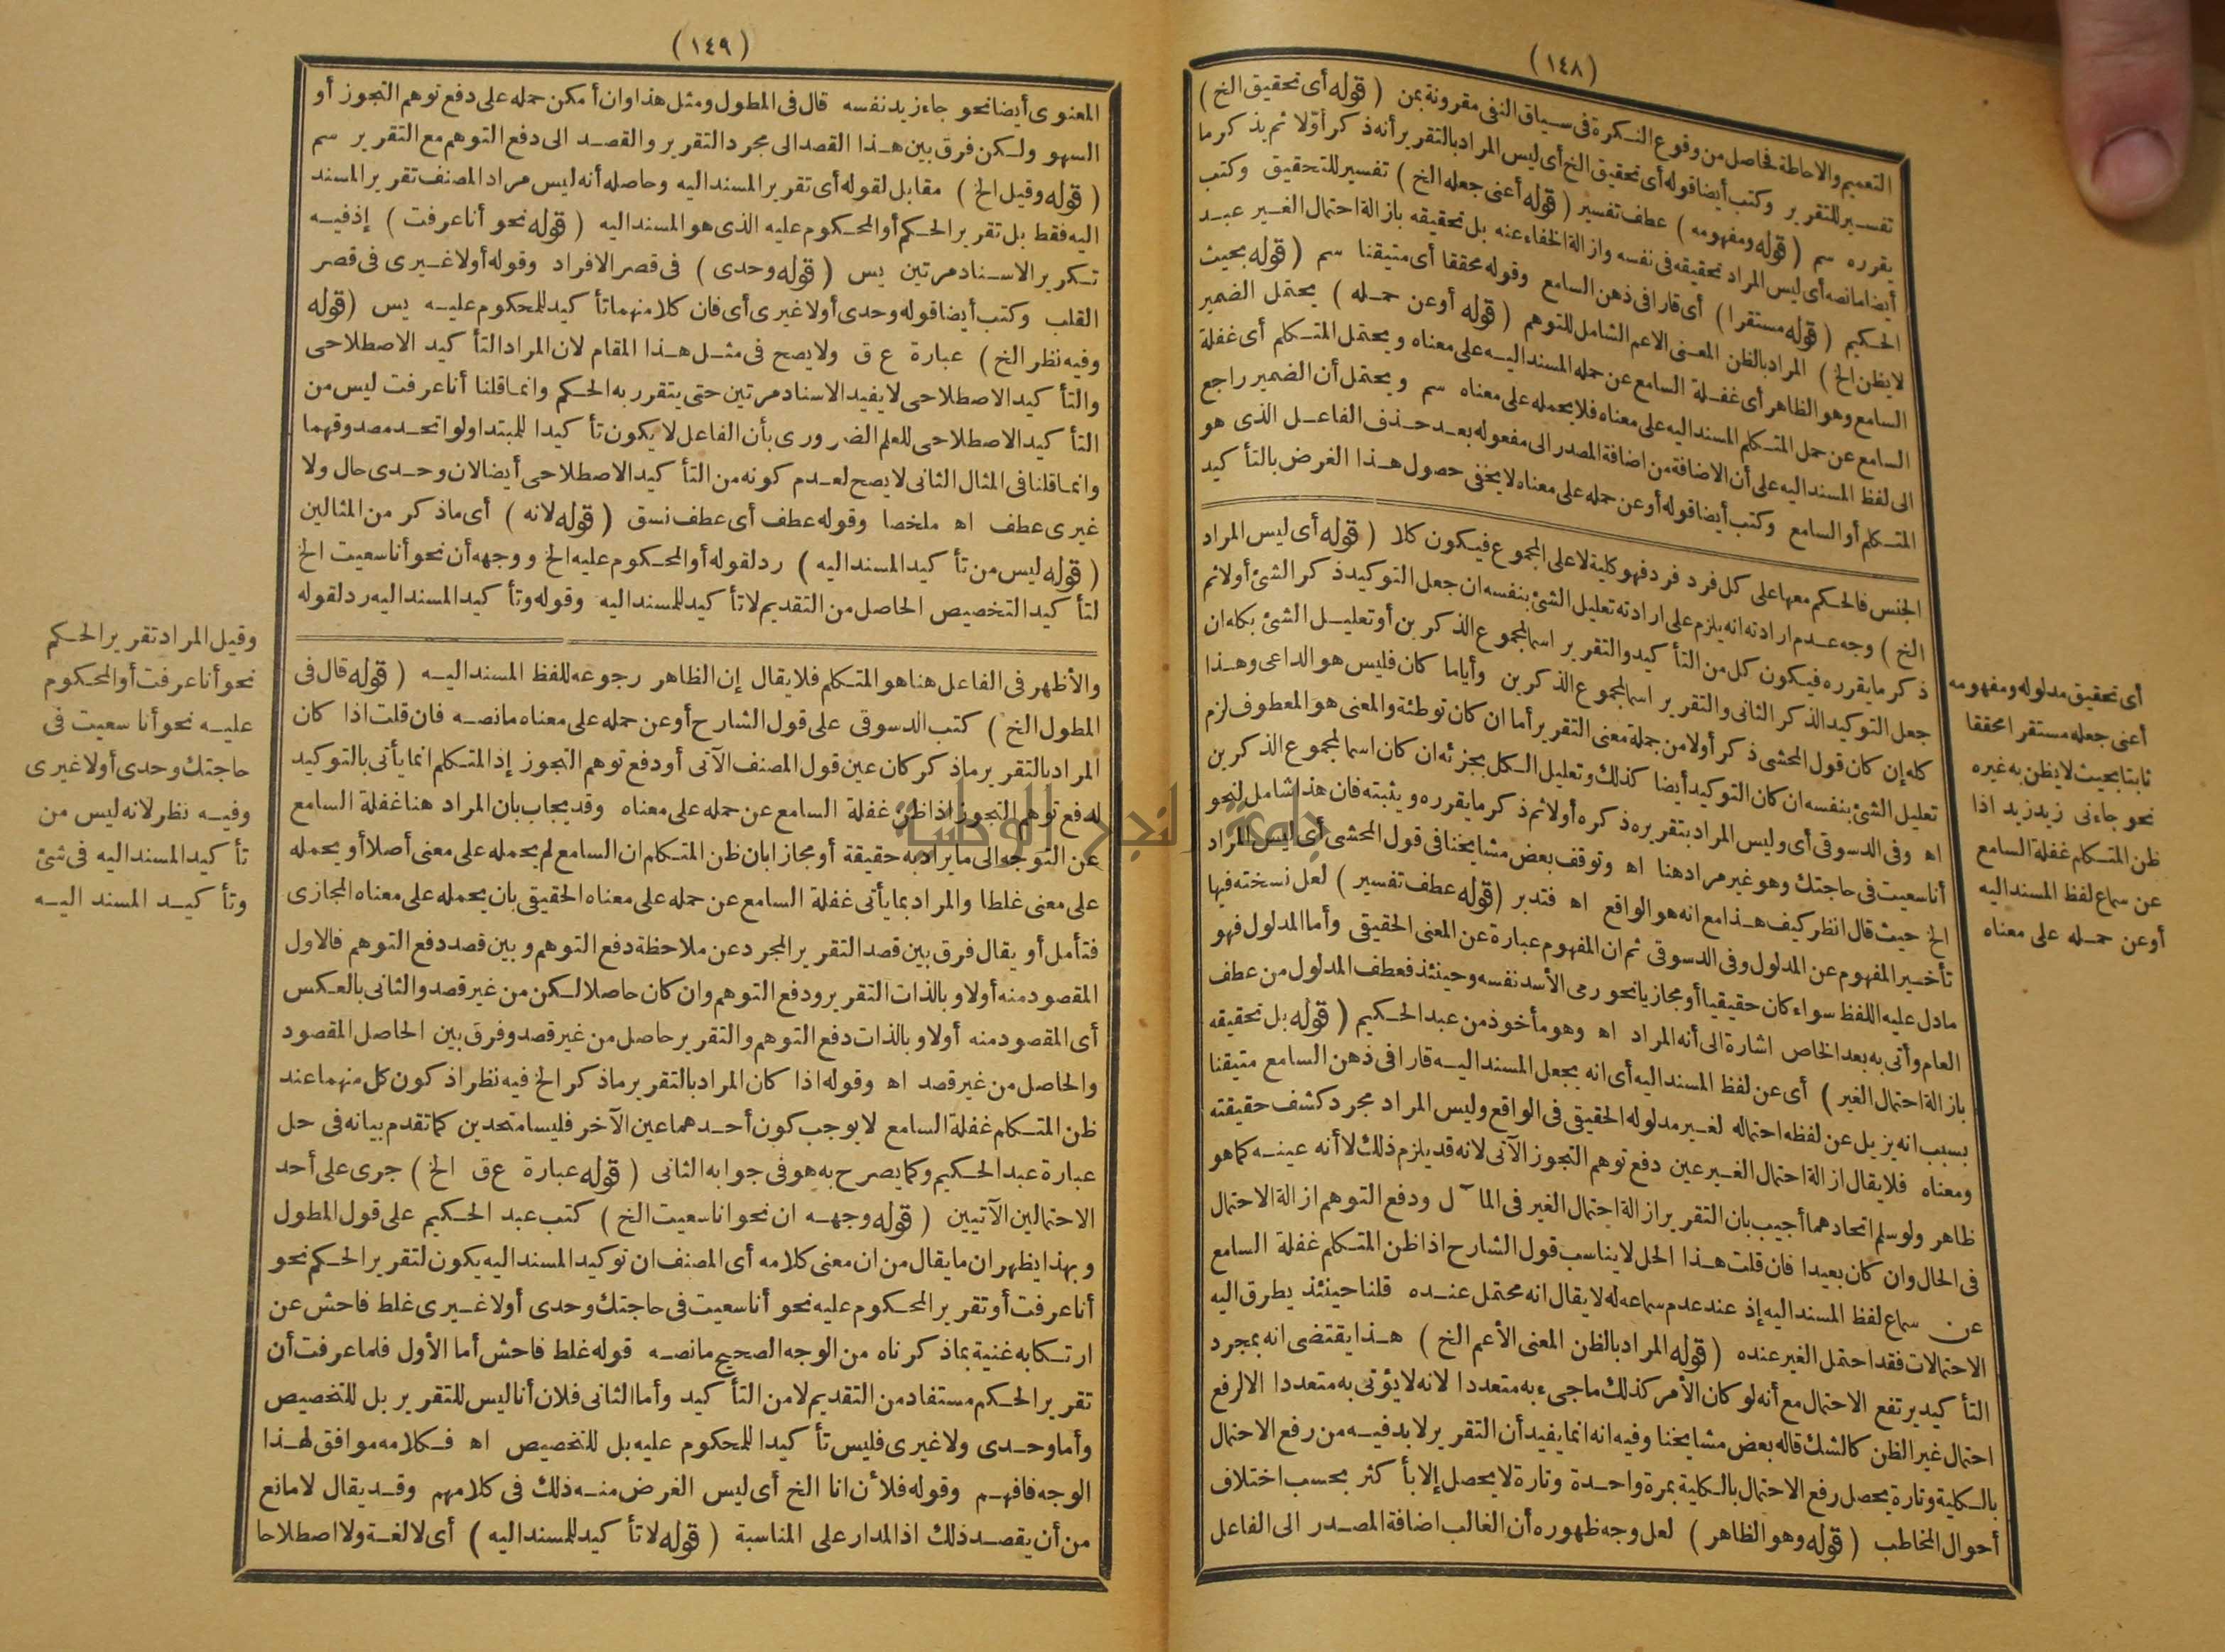 (١٤٨)
التعميم والاحاطة فحاصل من وقوع النكرة فى سياق النفى مقرونة بمن (قوله أى تحقيق الخ)
تفسير للتقرير وكتب أيضا قوله أى تحقيق الخ أى ليس المراد بالتقرير أنه ذكر أوّلا ثم يذكر ما
يقرره سم (قوله ومفهومه) عطف تفسير (قوله أعنى جعله الخ) تفسير للتحقيق وكتب
أيضا مانصه أى ليس المراد تحقيقه فى نفسه وازالة الخفاء عنه بل تحقيقه بازالة احتمال الغير عبد
الحكيم (قوله مستقرا) أى قارا فى ذهن السامع وقوله محققا أى متيقنا سم (قوله بحيث
لايظن الخ) المراد بالظن المعنى الاعم الشامل للتوهم (قوله أو عن حمله) يحتمل الضمير
السامع وهو الظاهر أى غفلة السامع عن حمله المسند اليه على معناه ويحتمل المتكلم أى غفلة
السامع عن حمل المتكلم المسند اليه على معناه فلا يحمله على معناه سم ويحتمل أن الضمير راجع
الى لفظ المسند اليه على أن الاضافة من اضافة المصدر الى مفعوله بعد حذف الفاعل الذى هو
المتكلم أو السامع وكتب أيضا قوله أو عن حمله على معناه لا يخفى حصول هذا الغرض بالتأكيد
الجنس فالحكم معها على كل فرد فرد فهو كلية لا على المجموع فيكون كلا (قوله أى ليس المراد
الخ) وجه عدم ارادته انه يلزم على ارادته تعليل الشئ بنفسه ان جعل التوكيد ذكر الشئ أولا ثم
ذكر ما يقرره فيكون كل من التأكيد والتقرير اسما لمجموع الذكرين أو تعليل الشئ بكله ان
جعل التوكيد الذكر الثانى والتقرير اسما لمجموع الذكرين وأياما كان فليس هو الداعى وهذا
كله إن كان قول المحشى ذكر أولا من جملة معنى التقرير أما ان كان توطئة والمعنى هو المعطوف لزم
تعليل الشئ بنفسه ان كان التوكيد أيضا كذلك وتعليل الكل بجزئه ان كان اسما لمجموع الذكرين
اه وفى الدسوقى أى وليس المراد بتقريره ذكره أولا ثم ذكر ما يقرره ويثبته فان هذا شامل لنحو
أنا سعيت فى حاجتك وهو غير مراد هنا اه وتوقف بعض مشايخنا فى قول المحشى أى ليس المراد
الخ حيث قال انظر كيف هذا مع انه هو الواقع اه فتدبر (قوله عطف تفسير) لعل نسخته فيها
تأخير المفهوم عن المدلول وفى الدسوقى ثم ان المفهوم عبارة عن المعنى الحقيقى وأما المدلول فهو
مادل عليه اللفظ سواء كان حقيقيا أو مجازيا نحو رمى الأسد نفسه وحينئذ فعطف المدلول من عطف
العام وأتى به بعد الخاص اشارة الى أنه المراد اه وهو مأخوذ من عبد الحكيم (قوله بل تحقيقه
بازالة احتمال الغير) أى عن لفظ المسند اليه أى انه يجعل المسند اليه قارا فى ذهن السامع متيقنا
بسبب انه يزيل عن لفظه احتماله لغير مدلوله الحقيقى فى الواقع وليس المراد مجرد كشف حقيقته
ومعناه فلا يقال ازالة احتمال الغير عين دفع توهم التجوز الآتى لانه قد يلزم ذلك لا أنه عينه كما هو
ظاهر ولو سلم اتحادهما أجيب بان التقرير ازالة احتمال الغير فى المآل ودفع التوهم ازالة الاحتمال
فى الحال وان كان بعيدا فان قلت هذا الحل لا يناسب قول الشارح اذا ظن المتكلم غفلة السامع
عن سماع لفظ المسند اليه إذ عند عدم سماعه له لا يقال انه محتمل عنده قلنا حينئذ يطرق اليه
الاحتمالات فقد احتمل الغير عنده (قوله المراد بالظن المعنى الأعم الخ) هذا يقتضى انه بمجرد
التأكيد يرتفع الاحتمال مع أنه لو كان الأمر كذلك ما جىء به متعددا لانه لا يؤتى به متعددا الا لرفع
احتمال غير الظن كالشك قاله بعض مشايخنا وفيه انه انما يفيد أن التقرير لابد فيه من رفع الاحتمال
بالكلية وتارة يحصل رفع الاحتمال بالكلية بمرة واحدة وتارة لا يحصل إلا بأكثر بحسب اختلاف
أحوال المخاطب (قوله وهو الظاهر) لعل وجه ظهوره أن الغالب اضافة المصدر الى الفاعل
أى تحقيق مدلوله ومفهومه
أعنى جعله مستقرا محققا
ثابتا بحيث لا يظن به غيره
نحو جاءنى زيد زيد اذا
ظن المتكلم غفلة السامع
عن سماع لفظ المسند اليه
أو عن حمله على معناه
(١٤٩)
المعنوى أيضا نحو جاء زيد نفسه قال فى المطول ومثل هذا وان أمكن حمله على دفع توهم التجوز أو
السهو ولكن فرق بين هذا القصد الى مجرد التقرير والقصد الى دفع التوهم مع التقرير سم
(قوله وقيل الخ) مقابل لقوله أى تقرير المسند اليه وحاصله أنه ليس مراد المصنف تقرير المسند
اليه فقط بل تقرير الحكم أو المحكوم عليه الذى هو المسند اليه (قوله نحو أنا عرفت) إذ فيه
تكرير الاسناد مرتين يس (قوله وحدى) فى قصر الافراد وقوله أولا غيرى فى قصر
القلب وكتب أيضا قوله وحدى أولا غيرى أى فان كلا منهما تأكيد للمحكوم عليه يس (قوله
وفيه نظر الخ) عبارة ع ق ولا يصح فى مثل هذا المقام لان المراد التأكيد الاصطلاحى
والتأكيد الاصطلاحى لا يفيد الاسناد مرتين حتى يتقرر به الحكم وانما قلنا أنا عرفت ليس من
التأكيد الاصطلاحى للعلم الضرورى بأن الفاعل لا يكون تأكيدا للمبتدا ولو اتحد مصدوقهما
وانما قلنا فى المثال الثانى لا يصح لعدم كونه من التأكيد الاصطلاحى أيضا لان وحدى حال ولا
غيرى عطف اه ملخصا وقوله عطف أى عطف نسق (قوله لانه) أى ماذكر من المثالين
(قوله ليس من تأكيد المسند اليه) رد لقوله أو المحكوم عليه الخ ووجهه أن نحو أنا سعيت الخ
لتأكيد التخصيص الحاصل من التقديم لا تأكيد للمسند اليه وقوله وتأكيد المسند اليه رد لقوله
والأظهر فى الفاعل هنا هو المتكلم فلا يقال إن الظاهر رجوعه للفظ المسند اليه (قوله قال فى
المطول الخ) كتب الدسوقى على قول الشارح أو عن حمله على معناه مانصه فان قلت اذا كان
المراد بالتقرير ماذكر كان عين قول المصنف الآتى أو دفع توهم التجوز إذ المتكلم انما يأتى بالتوكيد
لدفع توهم التجوز اذا ظن غفلة السامع عن حمله على معناه وقد يجاب بان المراد هنا غفلة السامع
عن التوجه الى ما يراد به حقيقة أو مجازا بان ظن المتكلم ان السامع لم يحمله على معنى أصلا أو يحمله
على معنى غلطا والمراد بما يأتى غفلة السامع عن حمله على معناه الحقيقى بان يحمله على معناه المجازى
فتأمل أو يقال فرق بين قصد التقرير المجرد عن ملاحظة دفع التوهم وبين قصد دفع التوهم فالاول
المقصود منه أولا وبالذات التقرير ودفع التوهم وان كان حاصلا لكن من غير قصد والثانى بالعكس
أى المقصود منه أولا وبالذات دفع التوهم والتقرير حاصل من غير قصد وفرق بين الحاصل المقصود
والحاصل من غير قصد اه وقوله اذا كان المراد بالتقرير ماذكر الخ فيه نظر اذ كون كل منهما عند
ظن المتكلم غفلة السامع لا يوجب كون أحدهما عين الآخر فليسا متحدين كما تقدم بيانه فى حل
عبارة عبد الحكيم وكما يصرح به هو فى جوابه الثانى (قوله عبارة ع ق الخ) جرى على أحد
الاحتمالين الآتيين (قوله وجهه ان نحو انا سعيت الخ) كتب عبد الحكيم على قول المطول
وبهذا يظهر ان ما يقال من ان معنى كلامه أى المصنف ان توكيد المسند اليه يكون لتقرير الحكم نحو
أنا عرفت أو تقرير المحكوم عليه نحو أنا سعيت فى حاجتك وحدى أولا غيرى غلط فاحش عن
ارتكابه غنية بماذكرناه من الوجه الصحيح مانصه قوله غلط فاحش أما الأول فلما عرفت أن
تقرير الحكم مستفاد من التقديم لا من التأكيد وأما الثانى فلان أنا ليس للتقرير بل للتخصيص
وأما وحدى ولا غيرى فليس تأكيدا للمحكوم عليه بل للتخصيص اه فكلامه موافق لهذا
الوجه فافهم وقوله فلأن انا الخ أى ليس الغرض منه ذلك فى كلامهم وقد يقال لا مانع
من أن يقصد ذلك اذ المدار على المناسبة (قوله لا تأكيد للمسند اليه) أى لا لغة ولا اصطلاحا
وقيل المراد تقرير الحكم
نحو أنا عرفت أو المحكوم
عليه نحو أنا سعيت فى
حاجتك وحدى أولا غيرى
وفيه نظر لانه ليس من
تأكيد المسند اليه فى شئ
وتأكيد المسند اليه